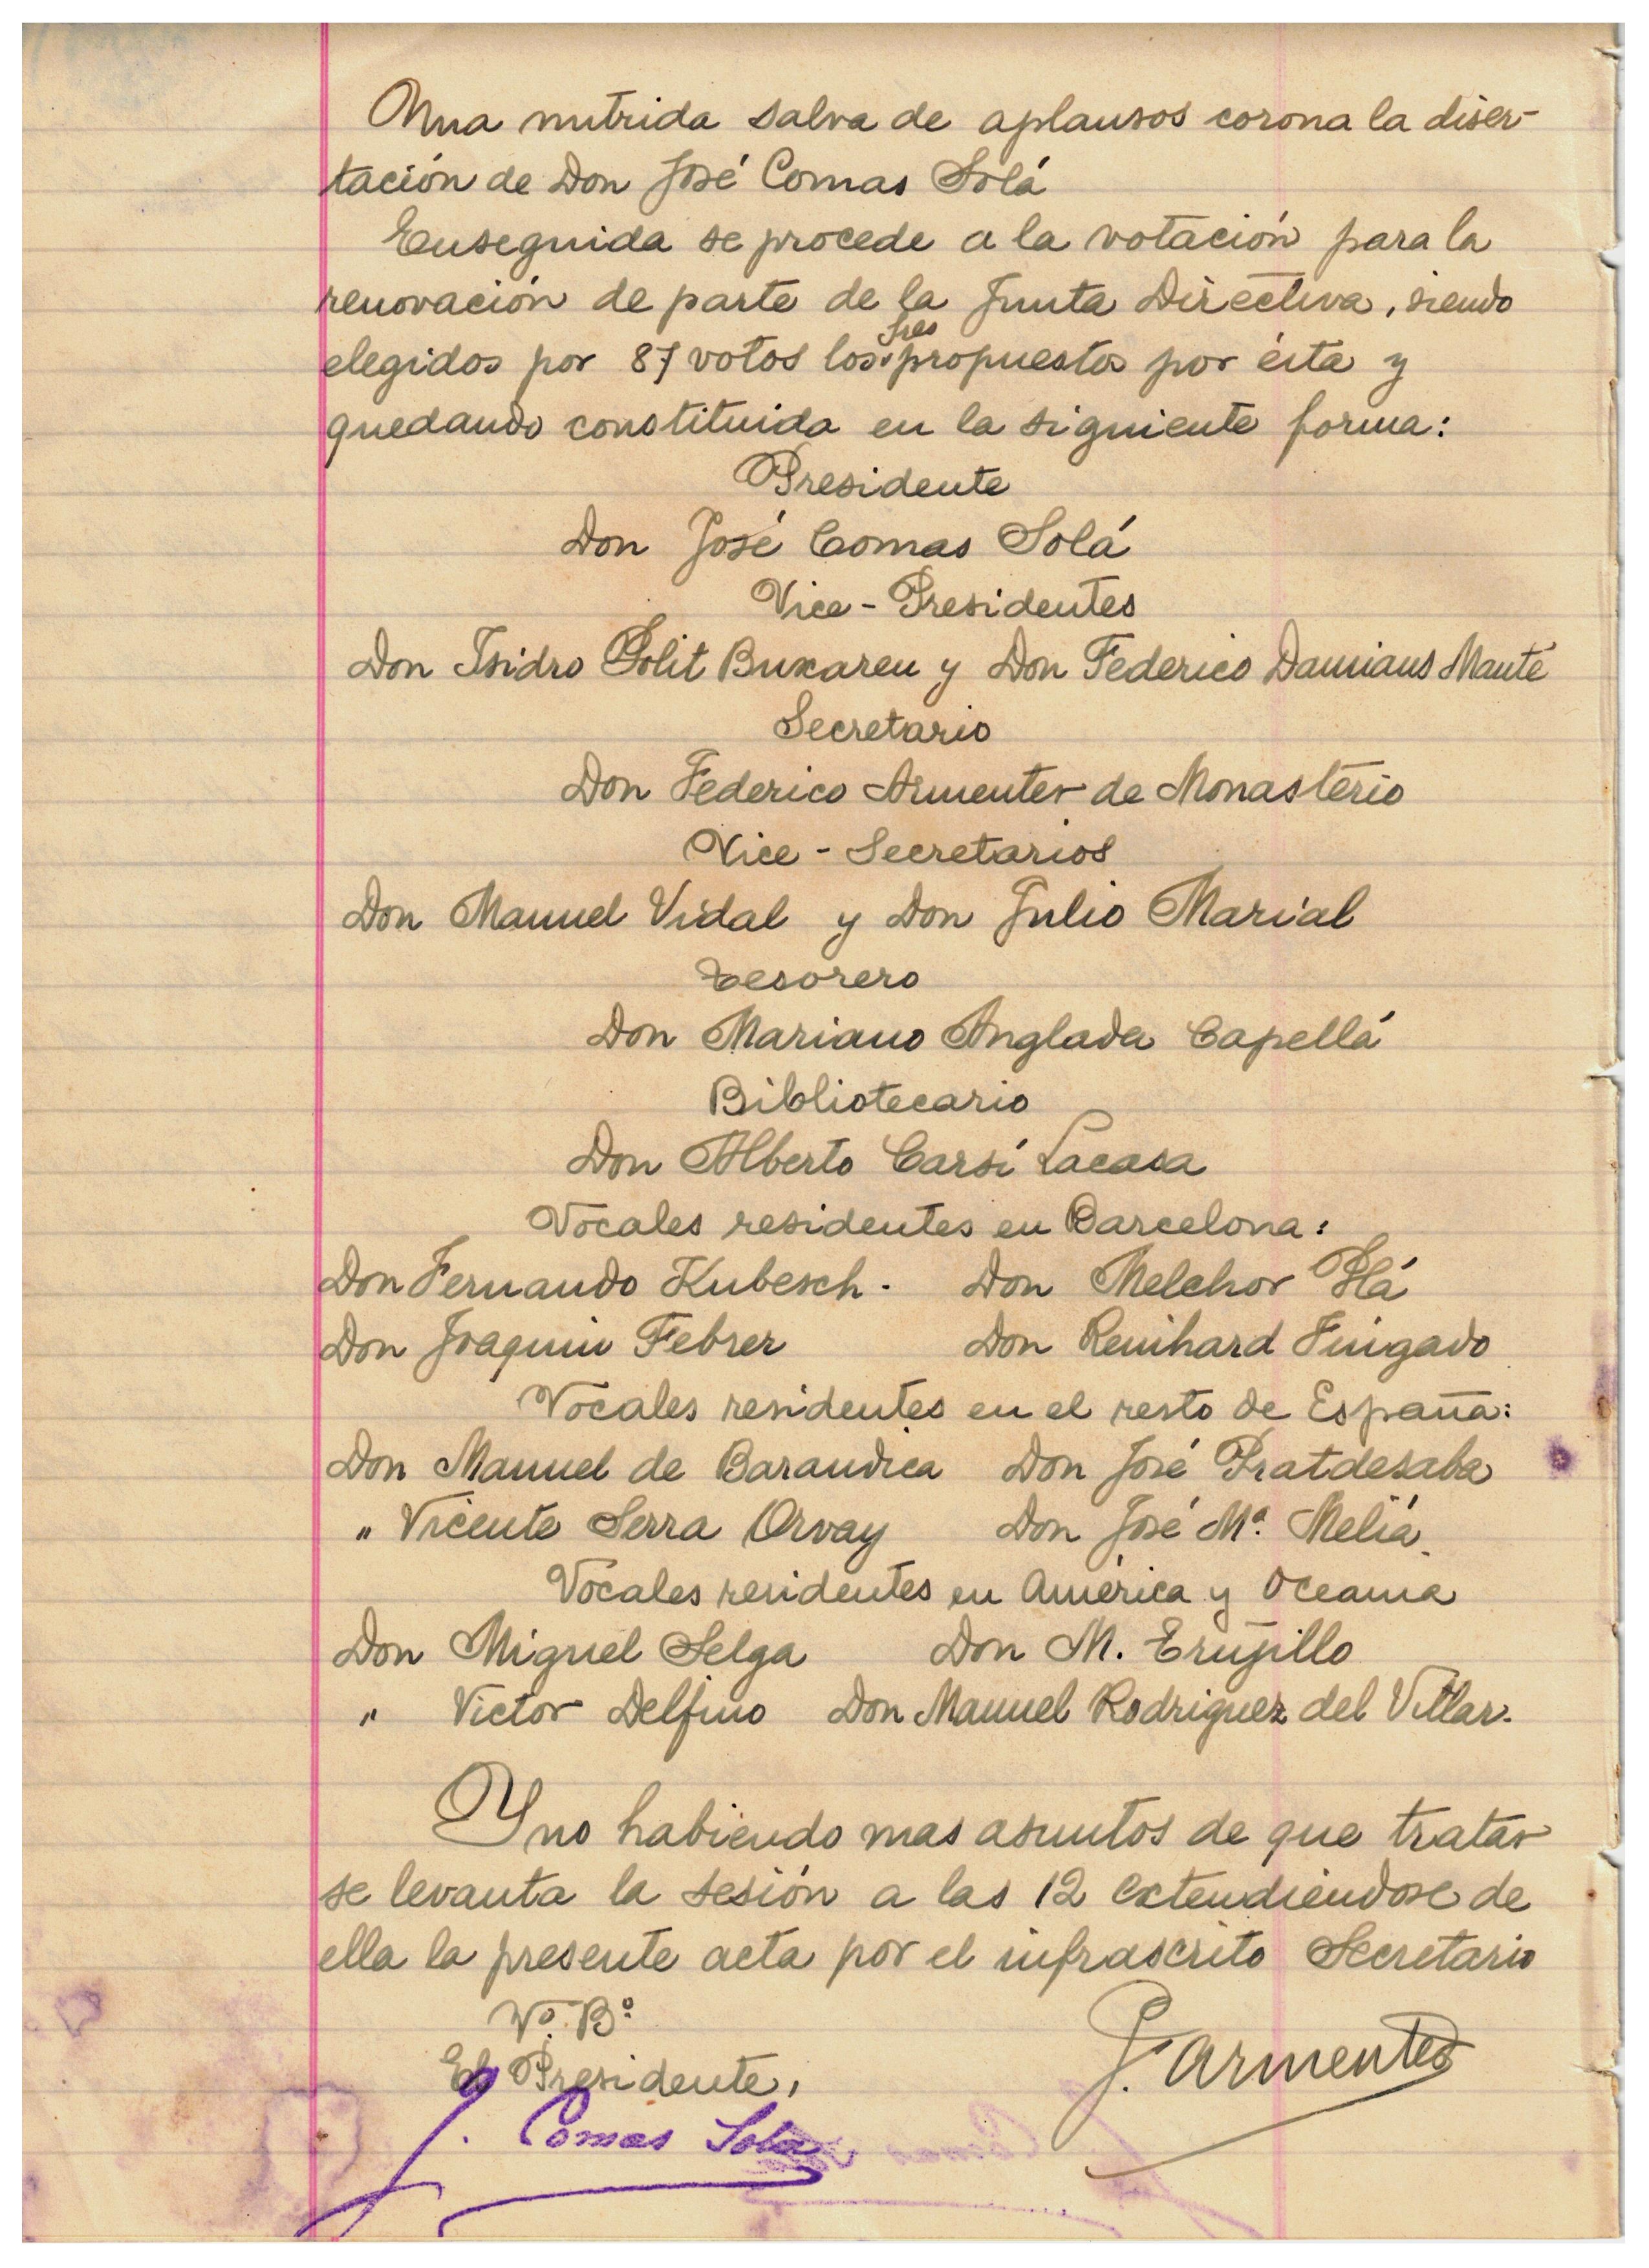 Una nutrida salva de aplausos corona la diser-
tación de Don José Comas Solá
Enseguida se procede a la votación para la
renovación de parte de la Junta Directiva, siendo
elegidos por 87 votos los Sres propuestos por ésta y
quedando constituida en la siguiente forma:
Presidente
Don José Comas Solá
Vice-Presidentes
Don Isidro Polit Buxareu y Don Federico Damians Manté
Secretario
Don Federico Armenter de Monasterio
Vice-Secretarios
Don Manuel Vidal y Don Julio Marial
Tesorero
Don Mariano Anglada Capellá
Bibliotecario
Don Alberto Carsí Lacasa
Vocales residentes en Barcelona:
Don Fernando Kubesch. Don Melchor Plá
Don Joaquin Febrer Don Reinhard Fingado
Vocales residentes en el resto de España:
Don Manuel de Barandica Don José Pratdesaba
" Vicente Serra Orvay Don José Mª Meliá
Vocales residentes en América y Oceania
Don Miguel Selga Don M. Trujillo
" Victor Delfino Don Manuel Rodriguez del Villar.
Y no habiendo mas asuntos de que tratar
se levanta la sesión a las 12 extendiendose de
ella la presente acta por el infrascrito Secretario
Vº. Bº
El Presidente,
F. Armenter
J. Comas Solá